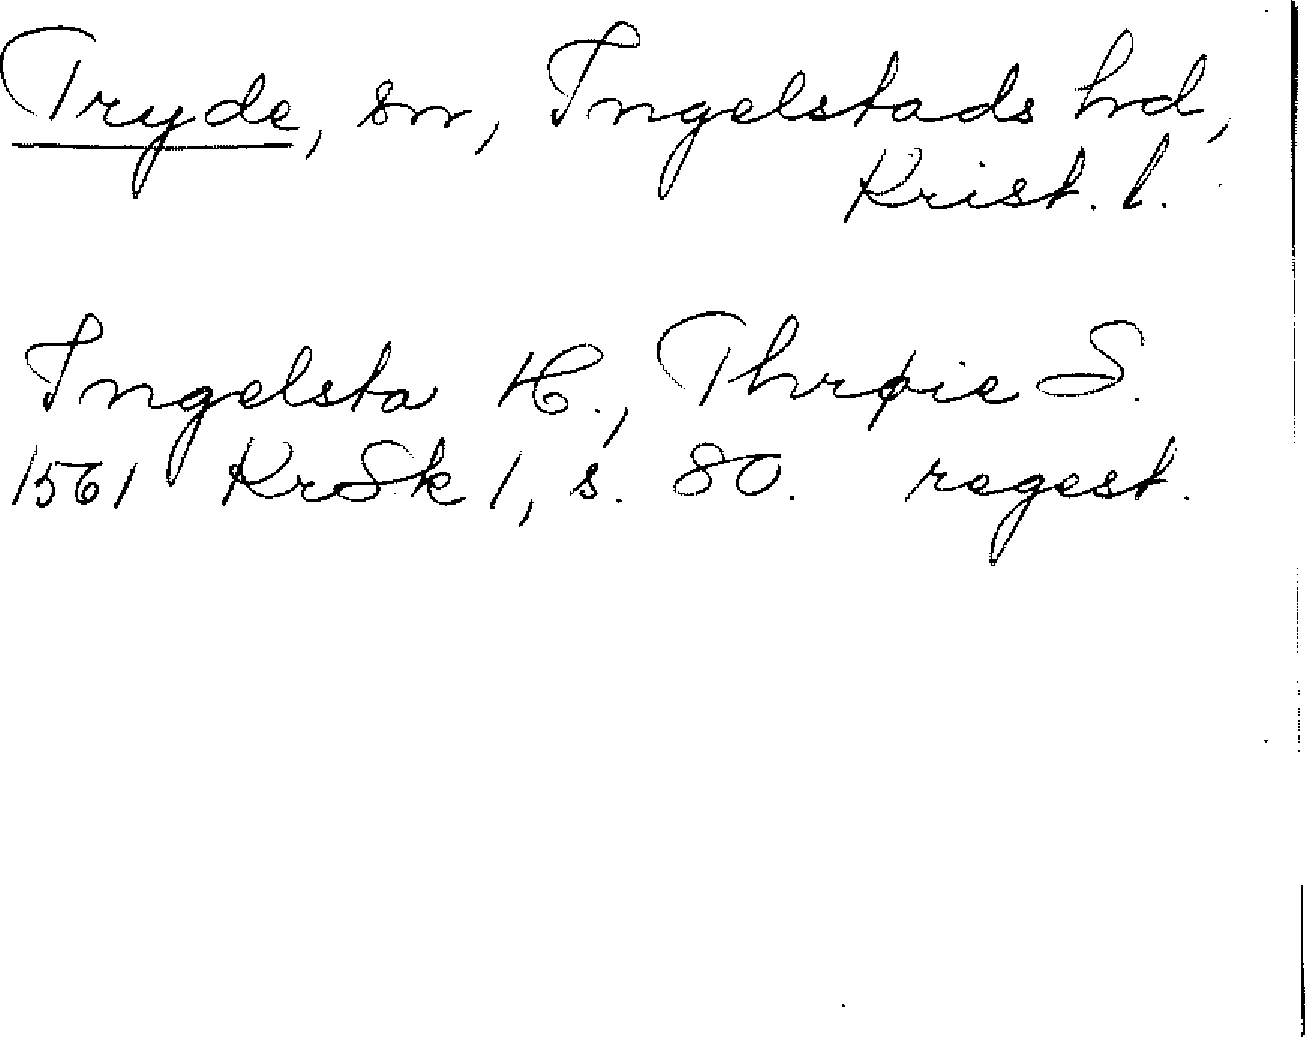 Tryde, sn, Ingelstads hd,
Krist. l.
Ingelsta H., Thrøie S.
1561 KrSk 1, s. 80. regest.